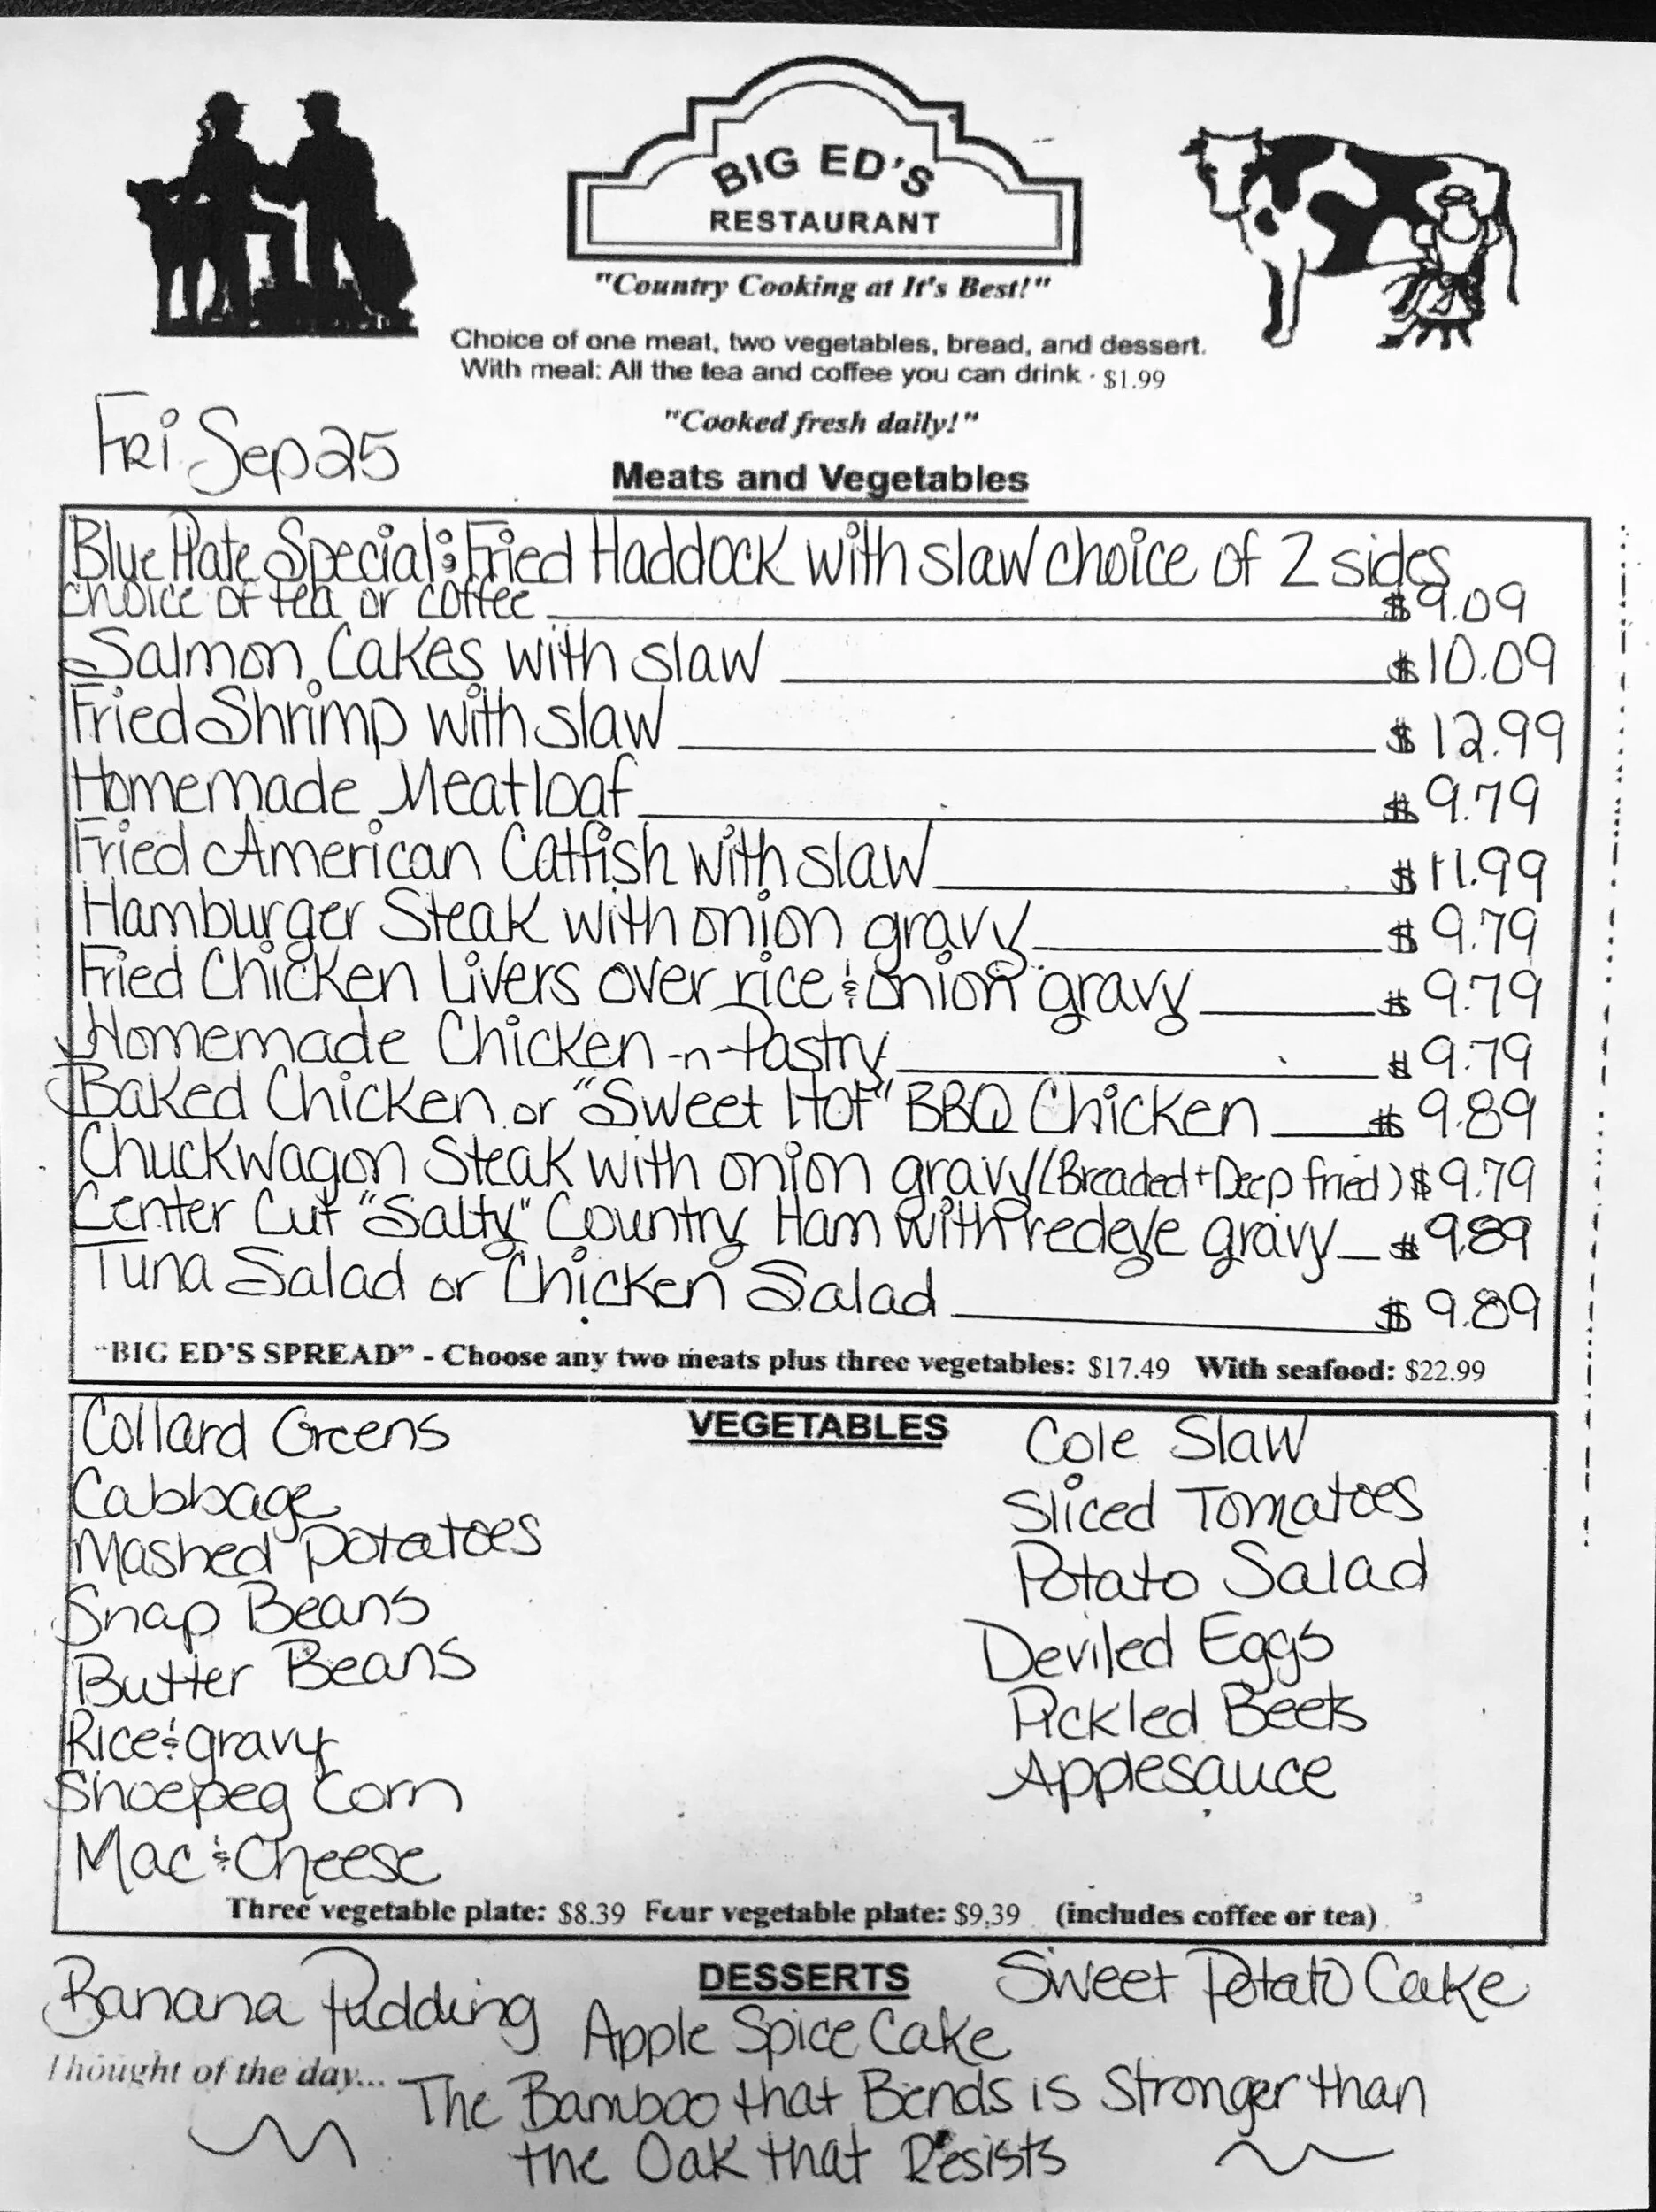 BIG ED'S
RESTAURANT
"Country Cooking at It's Best!"
Choice of one meat, two vegetables, bread, and dessert.
With meal: All the tea and coffee you can drink - $1.99
"Cooked fresh daily!"
Fri Sep 25
Meats and Vegetables
Blue Plate Special: Fried Haddock with slaw choice of 2 sides
choice of tea or coffee $9.09
Salmon Cakes with slaw $10.09
Fried Shrimp with slaw $12.99
Homemade Meatloaf $9.79
Fried American Catfish with slaw $11.99
Hamburger Steak with onion gravy $9.79
Fried Chicken Livers over rice & onion gravy $9.79
Homemade Chicken -n- Pastry $9.79
Baked Chicken or "Sweet Hot" BBQ Chicken $9.89
Chuckwagon Steak with onion gravy (Breaded + Deep fried) $9.79
Center Cut "Salty" Country Ham with redeye gravy $9.89
Tuna Salad or Chicken Salad $9.89
"BIG ED'S SPREAD" - Choose any two meats plus three vegetables: $17.49 With seafood: $22.99
VEGETABLES
Collard Greens
Cabbage
Mashed Potatoes
Snap Beans
Butter Beans
Rice & gravy
Shoepeg Corn
Mac & Cheese
Cole Slaw
Sliced Tomatoes
Potato Salad
Deviled Eggs
Pickled Beets
Applesauce
Three vegetable plate: $8.39 Four vegetable plate: $9.39 (includes coffee or tea)
DESSERTS
Banana Pudding
Apple Spice Cake
Sweet Potato Cake
Thought of the day...
The Bamboo that Bends is Stronger than
the Oak that Resists